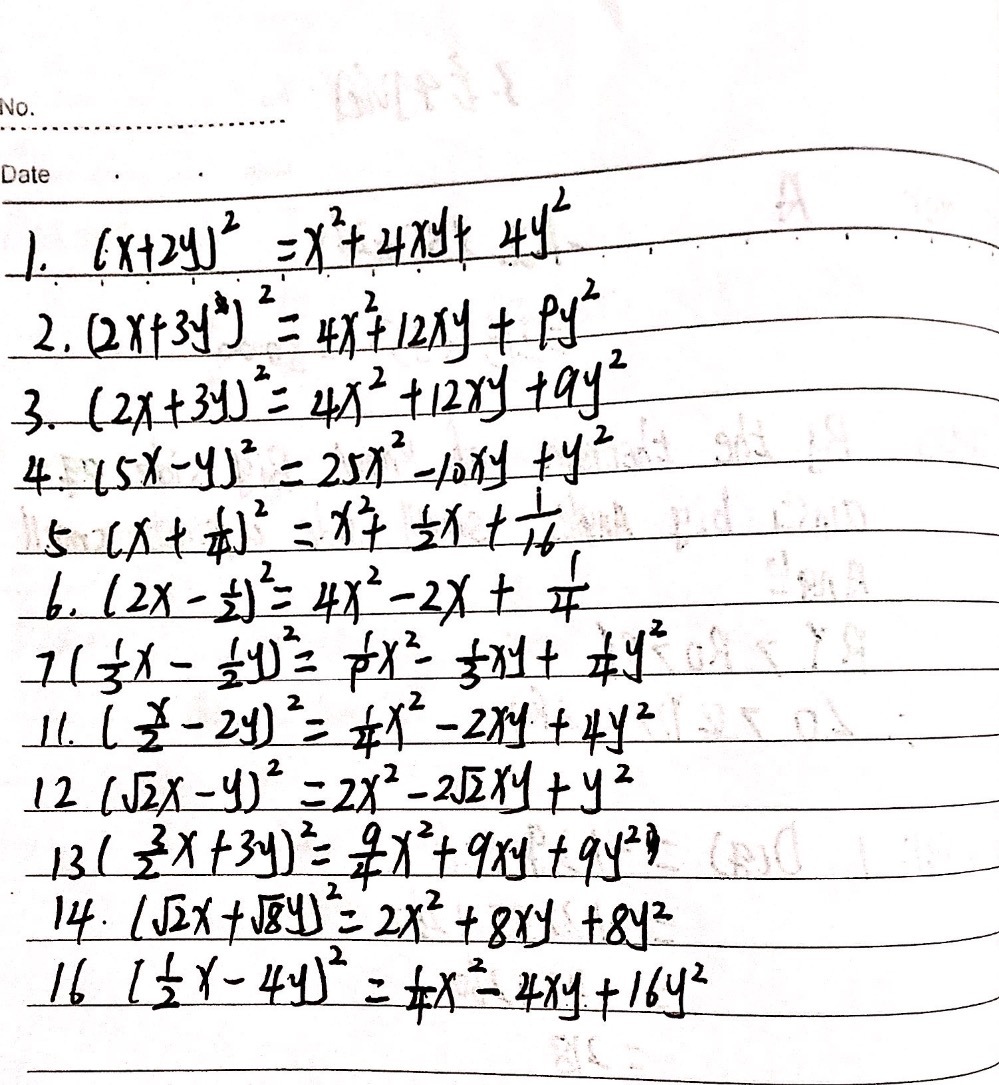 No.
Date
1. (x+2y)² = x² + 4xy + 4y²
2. (2x+3y)² = 4x² + 12xy + 9y²
3. (2x+3y)² = 4x² + 12xy + 9y²
4. (5x-y)² = 25x² - 10xy + y²
5 (x + 1/4)² = x² + 1/2x + 1/16
6. (2x - 1/2)² = 4x² - 2x + 1/4
7 (1/3x - 1/2y)² = 1/9x² - 1/3xy + 1/4y²
11. (x/2 - 2y)² = 1/4x² - 2xy + 4y²
12 (√2x - y)² = 2x² - 2√2xy + y²
13 (3/2x + 3y)² = 9/4x² + 9xy + 9y²
14. (√2x + √8y)² = 2x² + 8xy + 8y²
16 (1/2x - 4y)² = 1/4x² - 4xy + 16y²